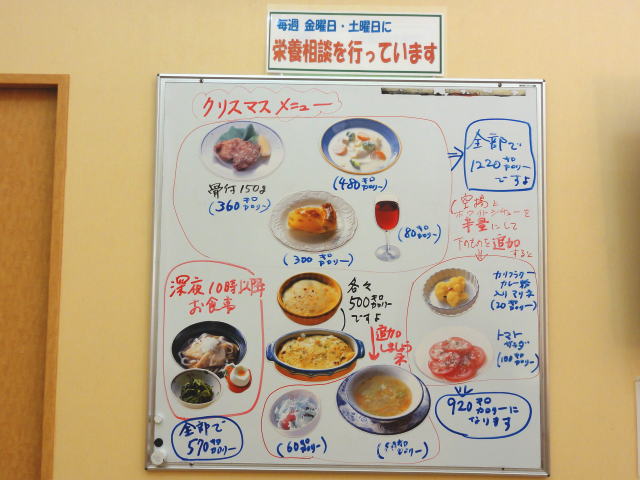 毎週 金曜日・土曜日に
栄養相談を行っています
クリスマスメニュー
骨付150g
(360キロカロリー)
(480キロカロリー)
(300キロカロリー)
(80キロカロリー)
全部で
1220キロカロリー
ですよ
ホワイトシチューを
半量にして
下のものを追加
すると
深夜10時以降
お食事
各々
500キロカロリー
ですよ
追加
しましょう
ネ
カリフラワー
カレー粉
入りマリネ
(20キロカロリー)
トマト
サラダ
(100キロカロリー)
920キロカロリーに
なります
全部で
570キロカロリー
(60キロカロリー)